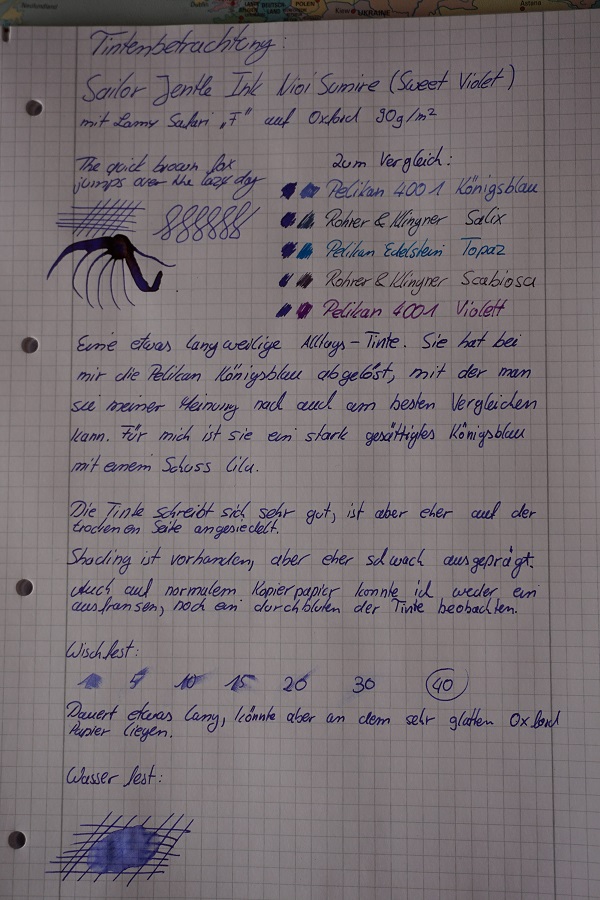 Tintenbetrachtung:
Sailor Jentle Ink Nioi Sumire (Sweet Violet)
mit Lamy Safari „F" auf Oxford 90g/m²
The quick brown fox
jumps over the lazy dog
zum Vergleich:
Pelikan 4001 Königsblau
Rohrer & Klingner Salix
Pelikan Edelstein Topaz
Rohrer & Klingner Scabiosa
Pelikan 4001 Violett
Eine etwas langweilige Alltags-Tinte. Sie hat bei
mir die Pelikan Königsblau abgelöst, mit der man
sie meiner Meinung nach auch am besten Vergleichen
kann. Für mich ist sie ein stark gesättigtes Königsblau
mit einem Schuss Lila.
Die Tinte schreibt sich sehr gut, ist aber eher auf der
trockenen Seite angesiedelt.
Shading ist vorhanden, aber eher schwach ausgeprägt.
Auch auf normalem Kopierpapier konnte ich weder ein
ausfransen, noch ein durchbluten der Tinte beobachten.
Wischfest:
5 10 15 20 30 40
Dauert etwas lang, könnte aber an dem sehr glatten Oxford
Papier liegen.
Wasserfest: